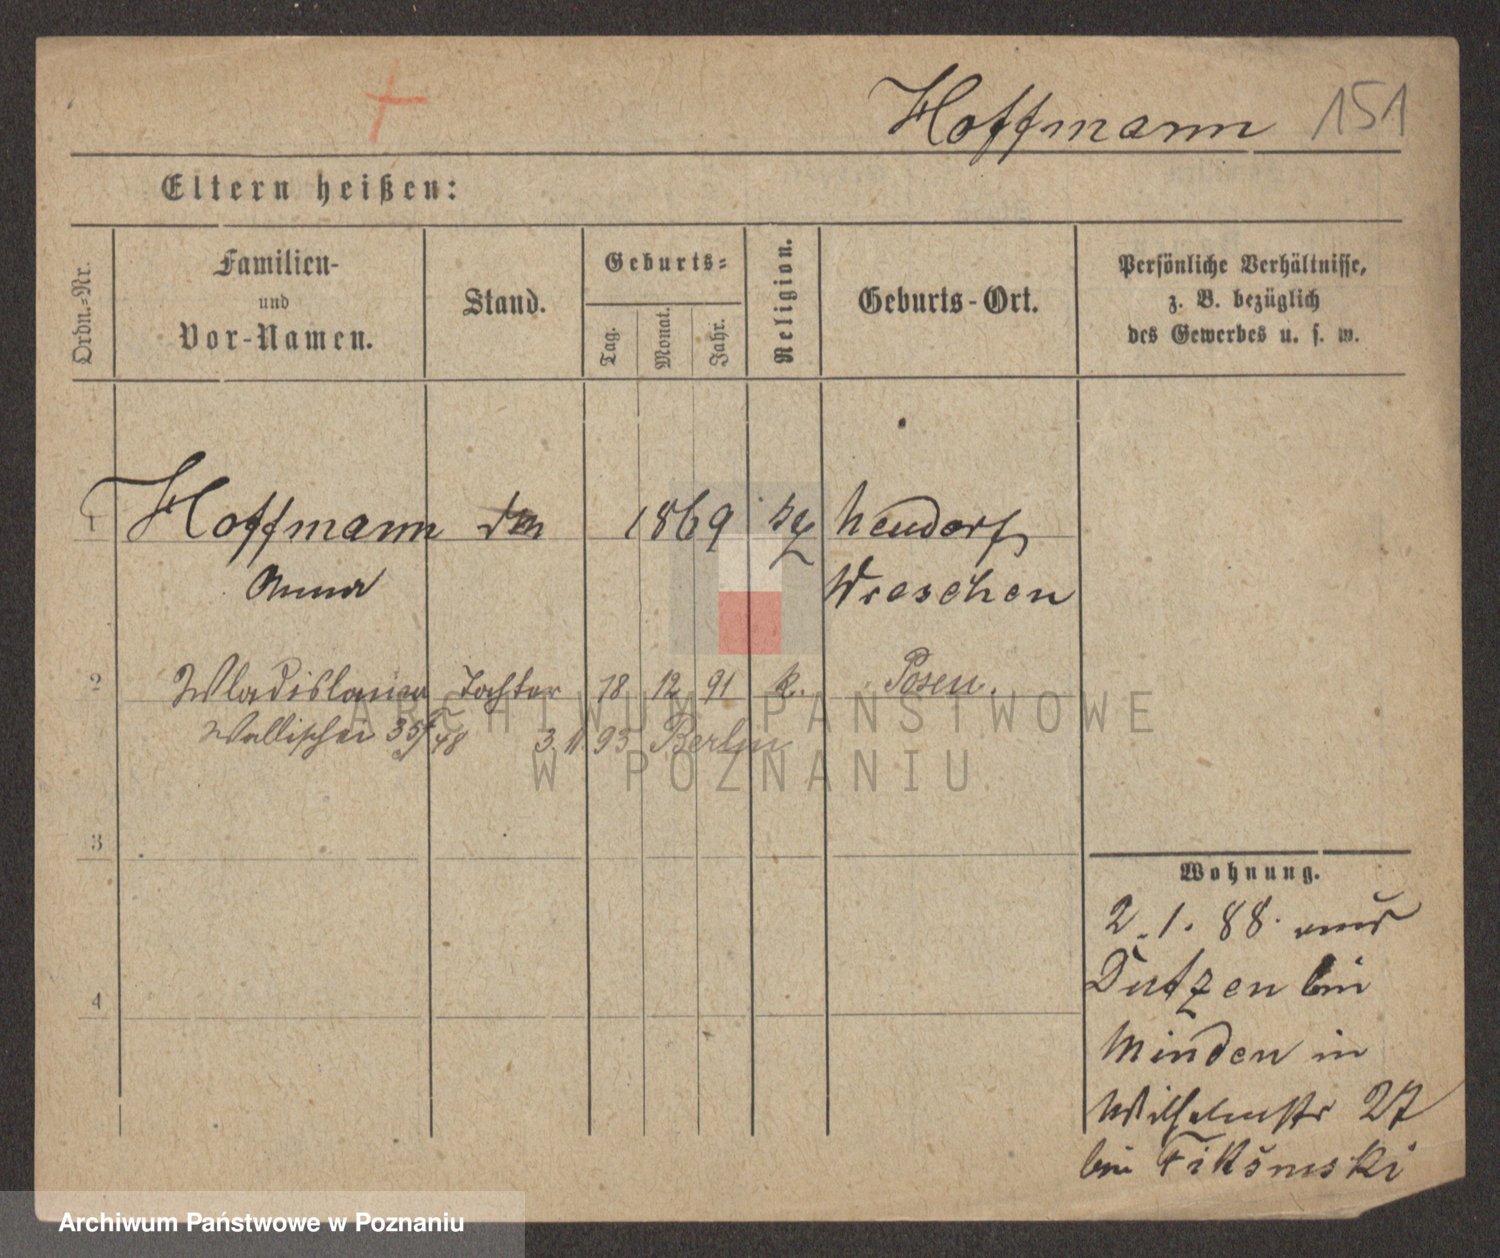 Hoffmann 151
Eltern heißen:
Ordn.=Nr.
Familien-
und
Vor-Namen.
Stand.
Geburts=
Tag.
Monat.
Jahr.
Religion.
Geburts-Ort.
Persönliche Verhältnisse,
z. B. bezüglich
des Gewerbes u. s. w.
1 Hoffmann 1869 Neudorf
Anna Wreschen
2 Wladislawa Tochter 18 12 91 k. Posen.
Wallischei 35/48 3 11 93 Berlin
3
4
Wohnung.
2.1.88. aus
Dutzen bei
Minden in
Wilhelmstr 27
bei
ARCHIWUM PAŃSTWOWE
W POZNANIU
Archiwum Państwowe w Poznaniu